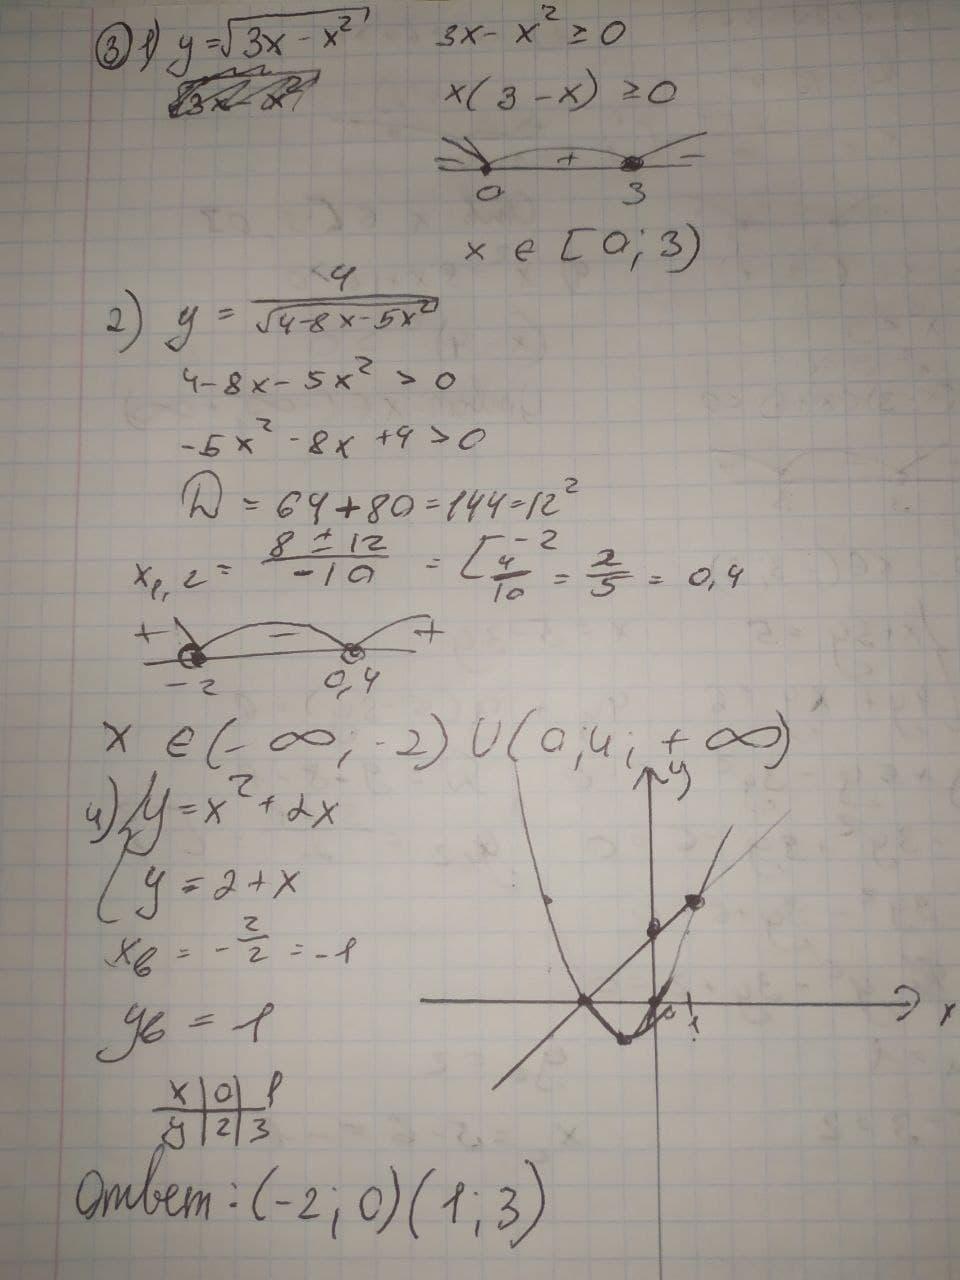 3) 1) y = √(3x - x²) 3x - x² ≥ 0
x(3 - x) ≥ 0
+ -
0 3
x ∈ [0; 3)
2) y = 4/√(4-8x-5x²)
4-8x-5x² > 0
-5x² -8x +4 > 0
D = 64+80=144=12²
x₁,₂ = (8 ± 12)/(-10) = [ -2
4/10 = 2/5 = 0,4
+ - +
-2 0,4
x ∈ (-∞; -2) ∪ (0,4; +∞)
y
4) { y = x² + 2x
y = 2 + x
xв = -2/2 = -1
x
0 1
yв = 1
x | 0 | 1
y | 2 | 3
Ответ: (-2; 0) (1; 3)